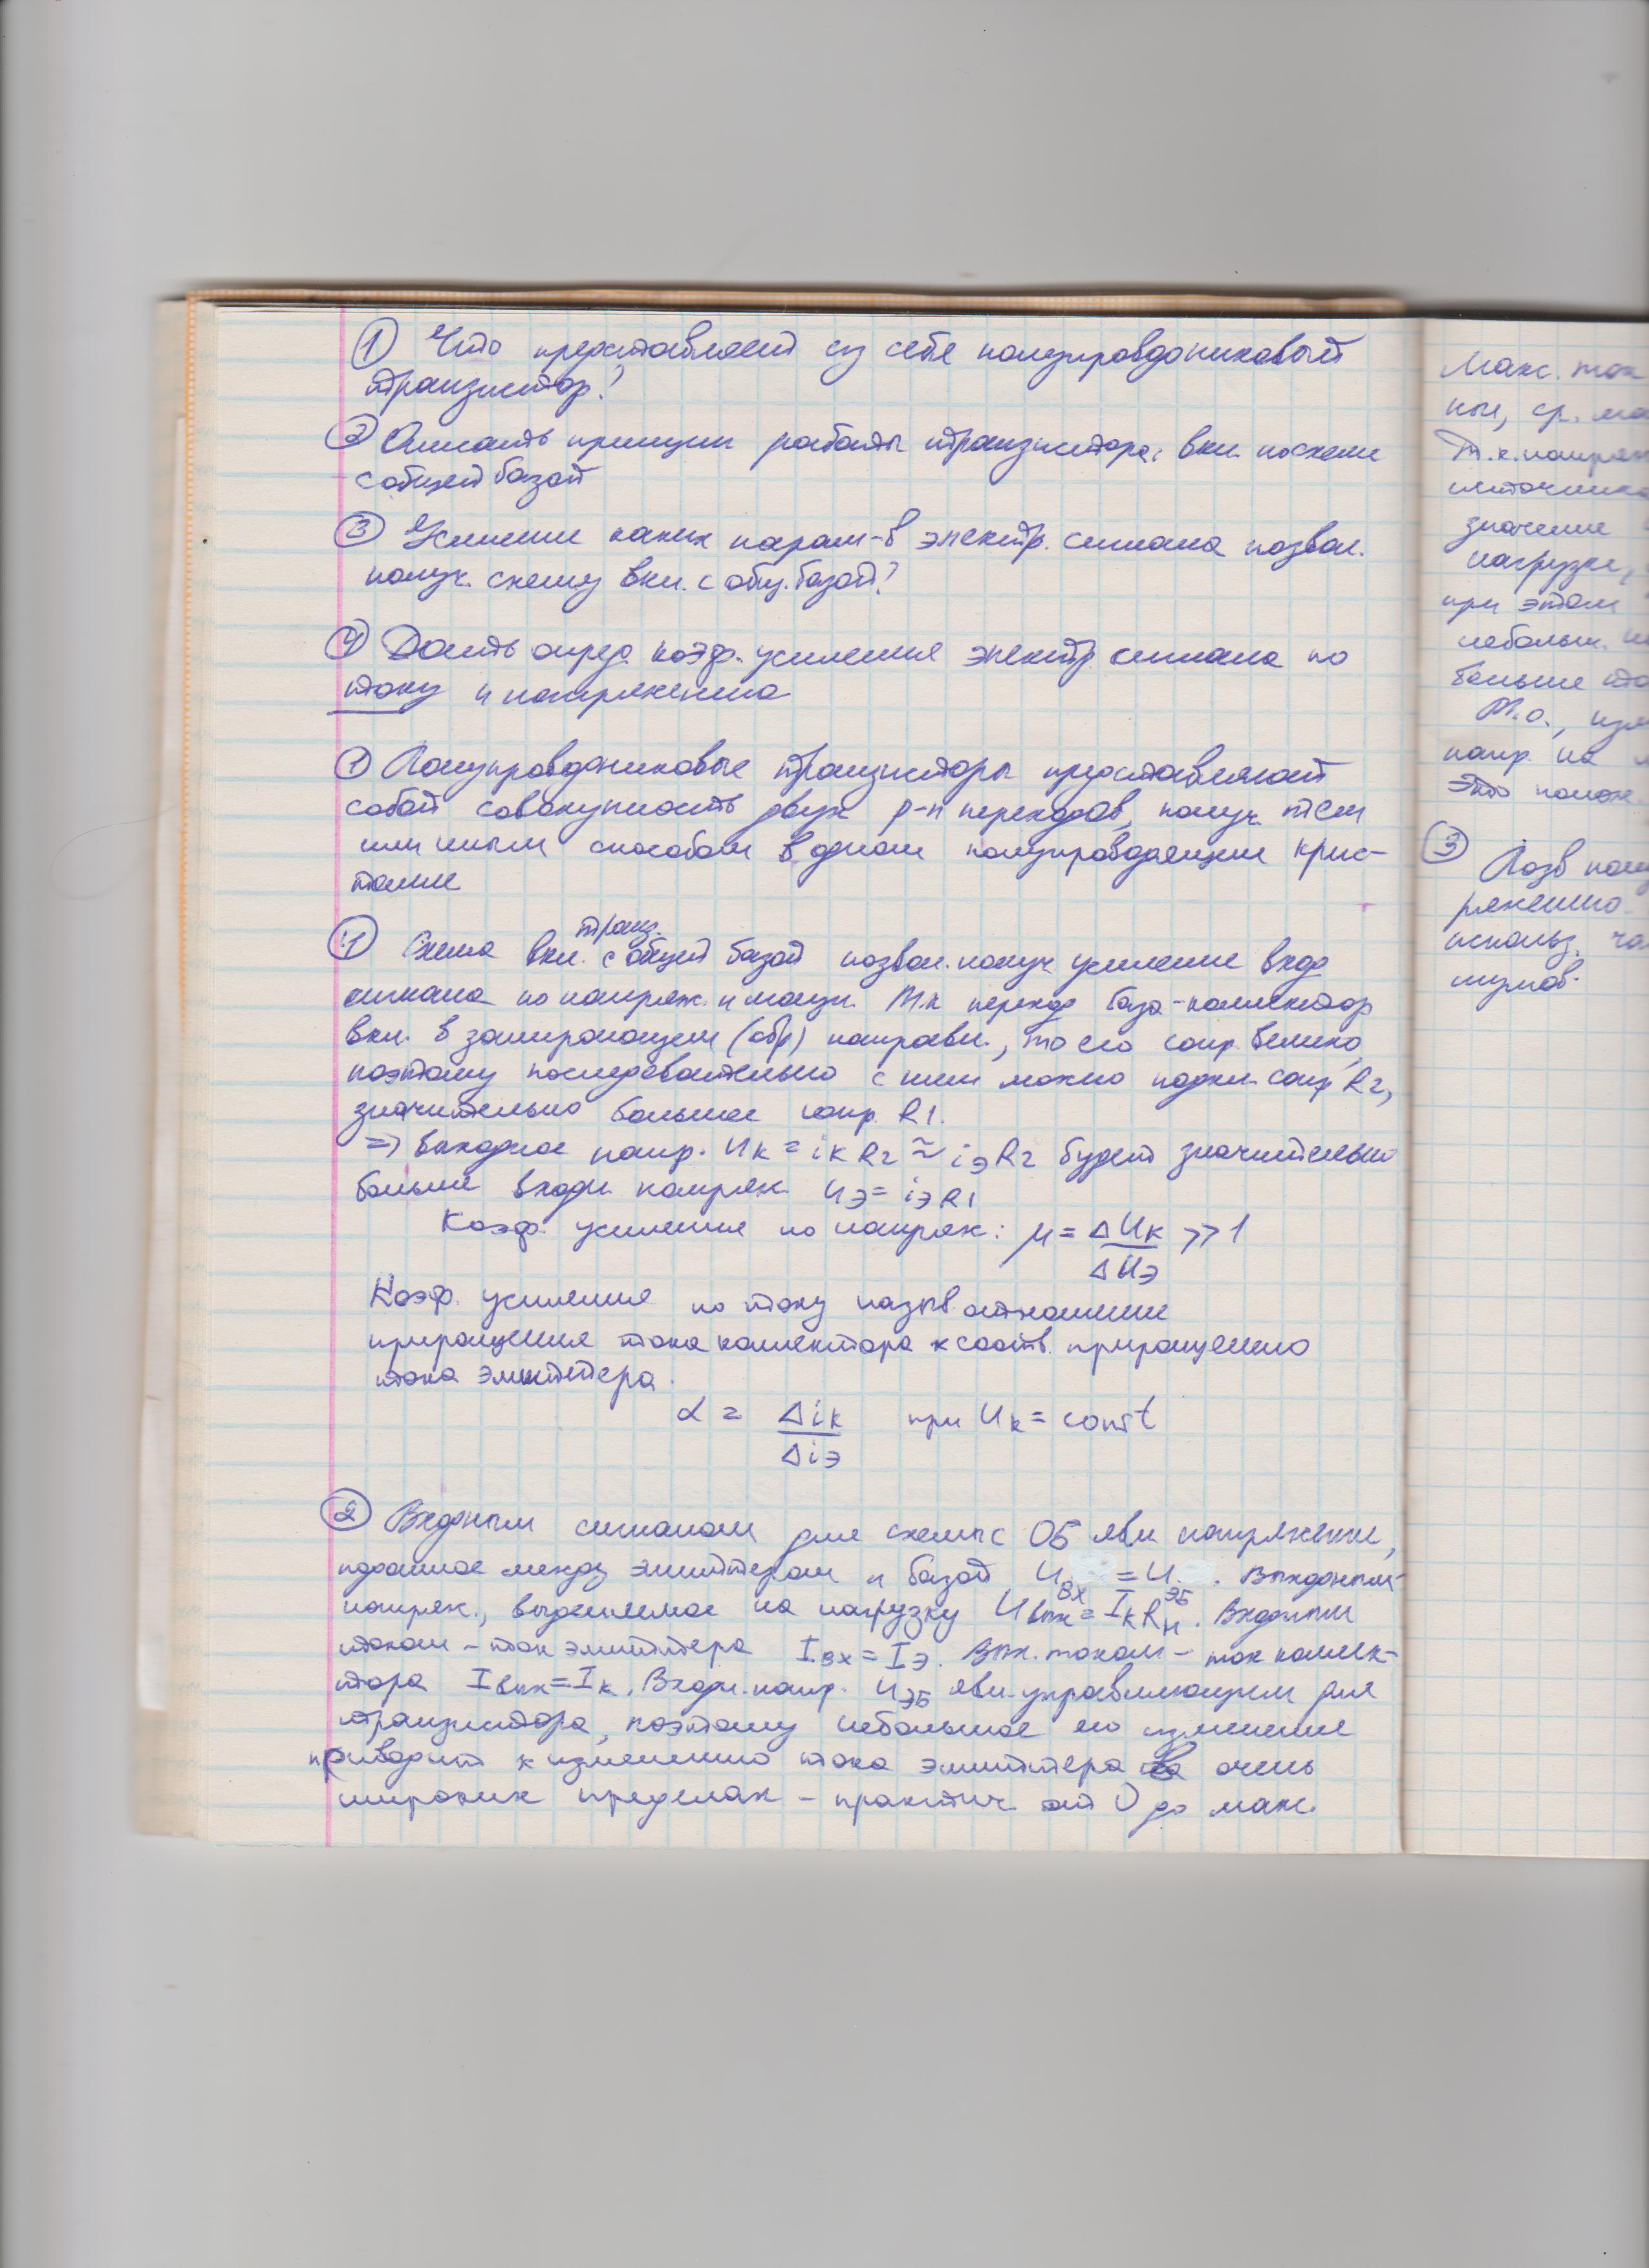 ① Что представляет из себя полупроводниковый
транзистор?
② Описать принцип работы транзистора, вкл. по схеме
с общей базой
③ Усиление каких парам-в электр. сигнала позвол.
получ. схему вкл. с общ. базой?
④ Дать опред. коэф. усиления электр. сигнала по
току и напряжению
① Полупроводниковые транзисторы представляют
собой совокупность двух p-n переходов, получ. тем
или иным способом в одном полупроводящем крис-
талле
④ Схема вкл. транз. с общей базой позвол. получ. усиление вход
сигнала по напряж. и мощн. Т.к переход база-коллектор
вкл. в запирающем (обр) направл., то его сопр. велико,
поэтому последовательно с ним можно подкл. сопр R2,
значительно большее сопр. R1.
=> Выходное напр. Uк = iк R2 ≈ iэ R2 будет значительно
больше входн. напряж. Uэ = iэ R1
Коэф. усиления по напряж: μ = ΔUк / ΔUэ >> 1
Коэф. усиления по току назыв. отношение
приращения тока коллектора к соотв. приращению
тока эмиттера.
α = Δiк / Δiэ при Uк = const
② Входным сигналом для схемы с ОБ явл. напряжение,
поданное между эмиттером и базой Uвх = Uэб. Выходным-
напряж., выделяемое на нагрузку Uвых = IкRн. Входным
током – ток эмиттера Iвх = Iэ. Вых. током – ток коллек-
тора Iвых = Iк. Входн. напр. Uэб явл. управляющим для
транзистора, поэтому небольшое его изменение
приводит к изменению тока эмиттера в очень
широких пределах – практич. от 0 до макс.
Макс. ток
ном, ср.
Т.к. напряж
источника
значение
нагрузке,
при этом
небольш.
больше
Т.о.,
напр. на
это
③ Позв
ряжению.
использ.
шумов.